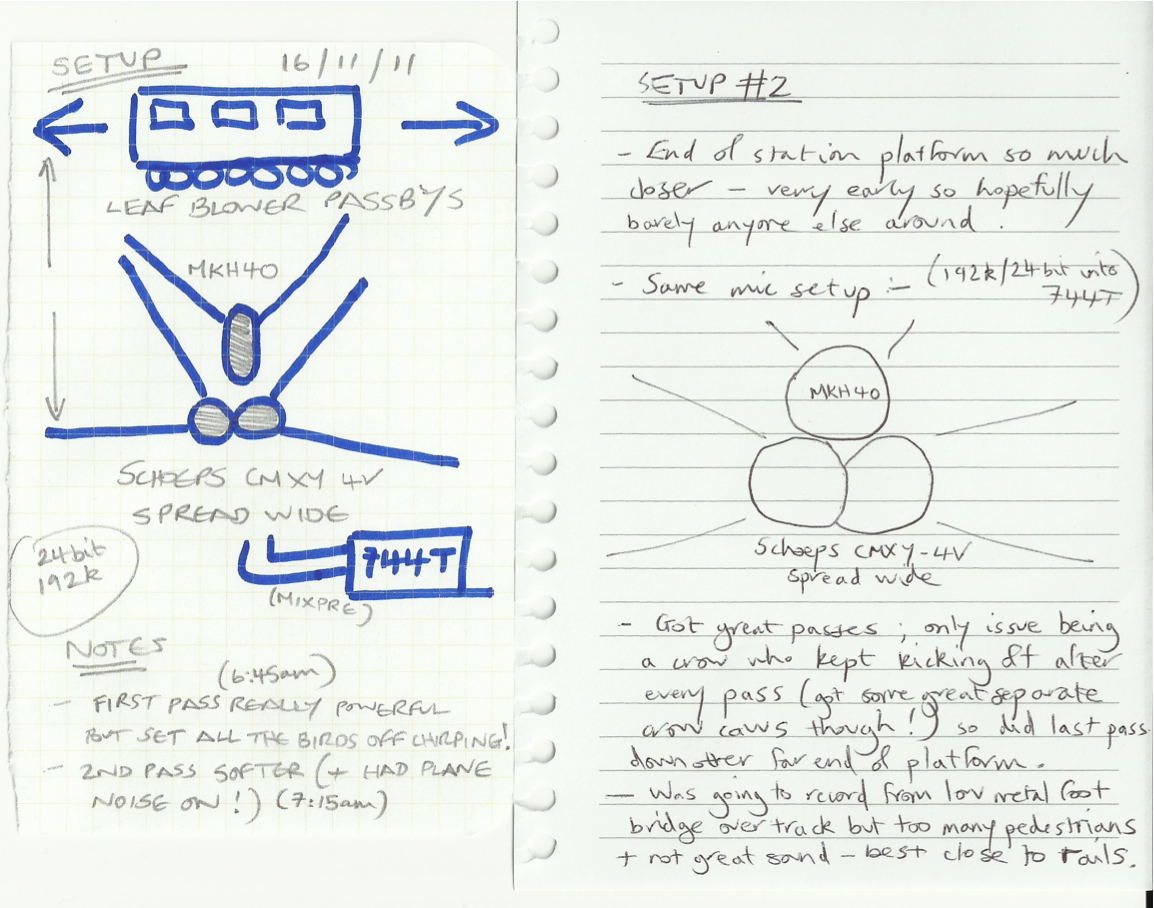 SETUP 16/11/11
LEAF BLOWER PASSBYS
MKH40
SCHOEPS CMXY 4V
SPREAD WIDE
24bit
192k
744T
(MIXPRE)
NOTES
(6:45am)
- FIRST PASS REALLY POWERFUL
BUT SET ALL THE BIRDS OFF CHIRPING!
- 2ND PASS SOFTER (+ HAD PLANE
NOISE ON!) (7:15am)
SETUP #2
- End of station platform so much
closer - very early so hopefully
barely anyone else around.
- Same mic setup :- (192k/24bit into
744T)
MKH40
Schoeps CMXY-4V
spread wide
- Got great passes ; only issue being
a crow who kept kicking off after
every pass (got some great separate
crow caws though!) so did last pass
down other far end of platform.
- Was going to record from low metal foot
bridge over track but too many pedestrians
+ not great sound - best close to rails.